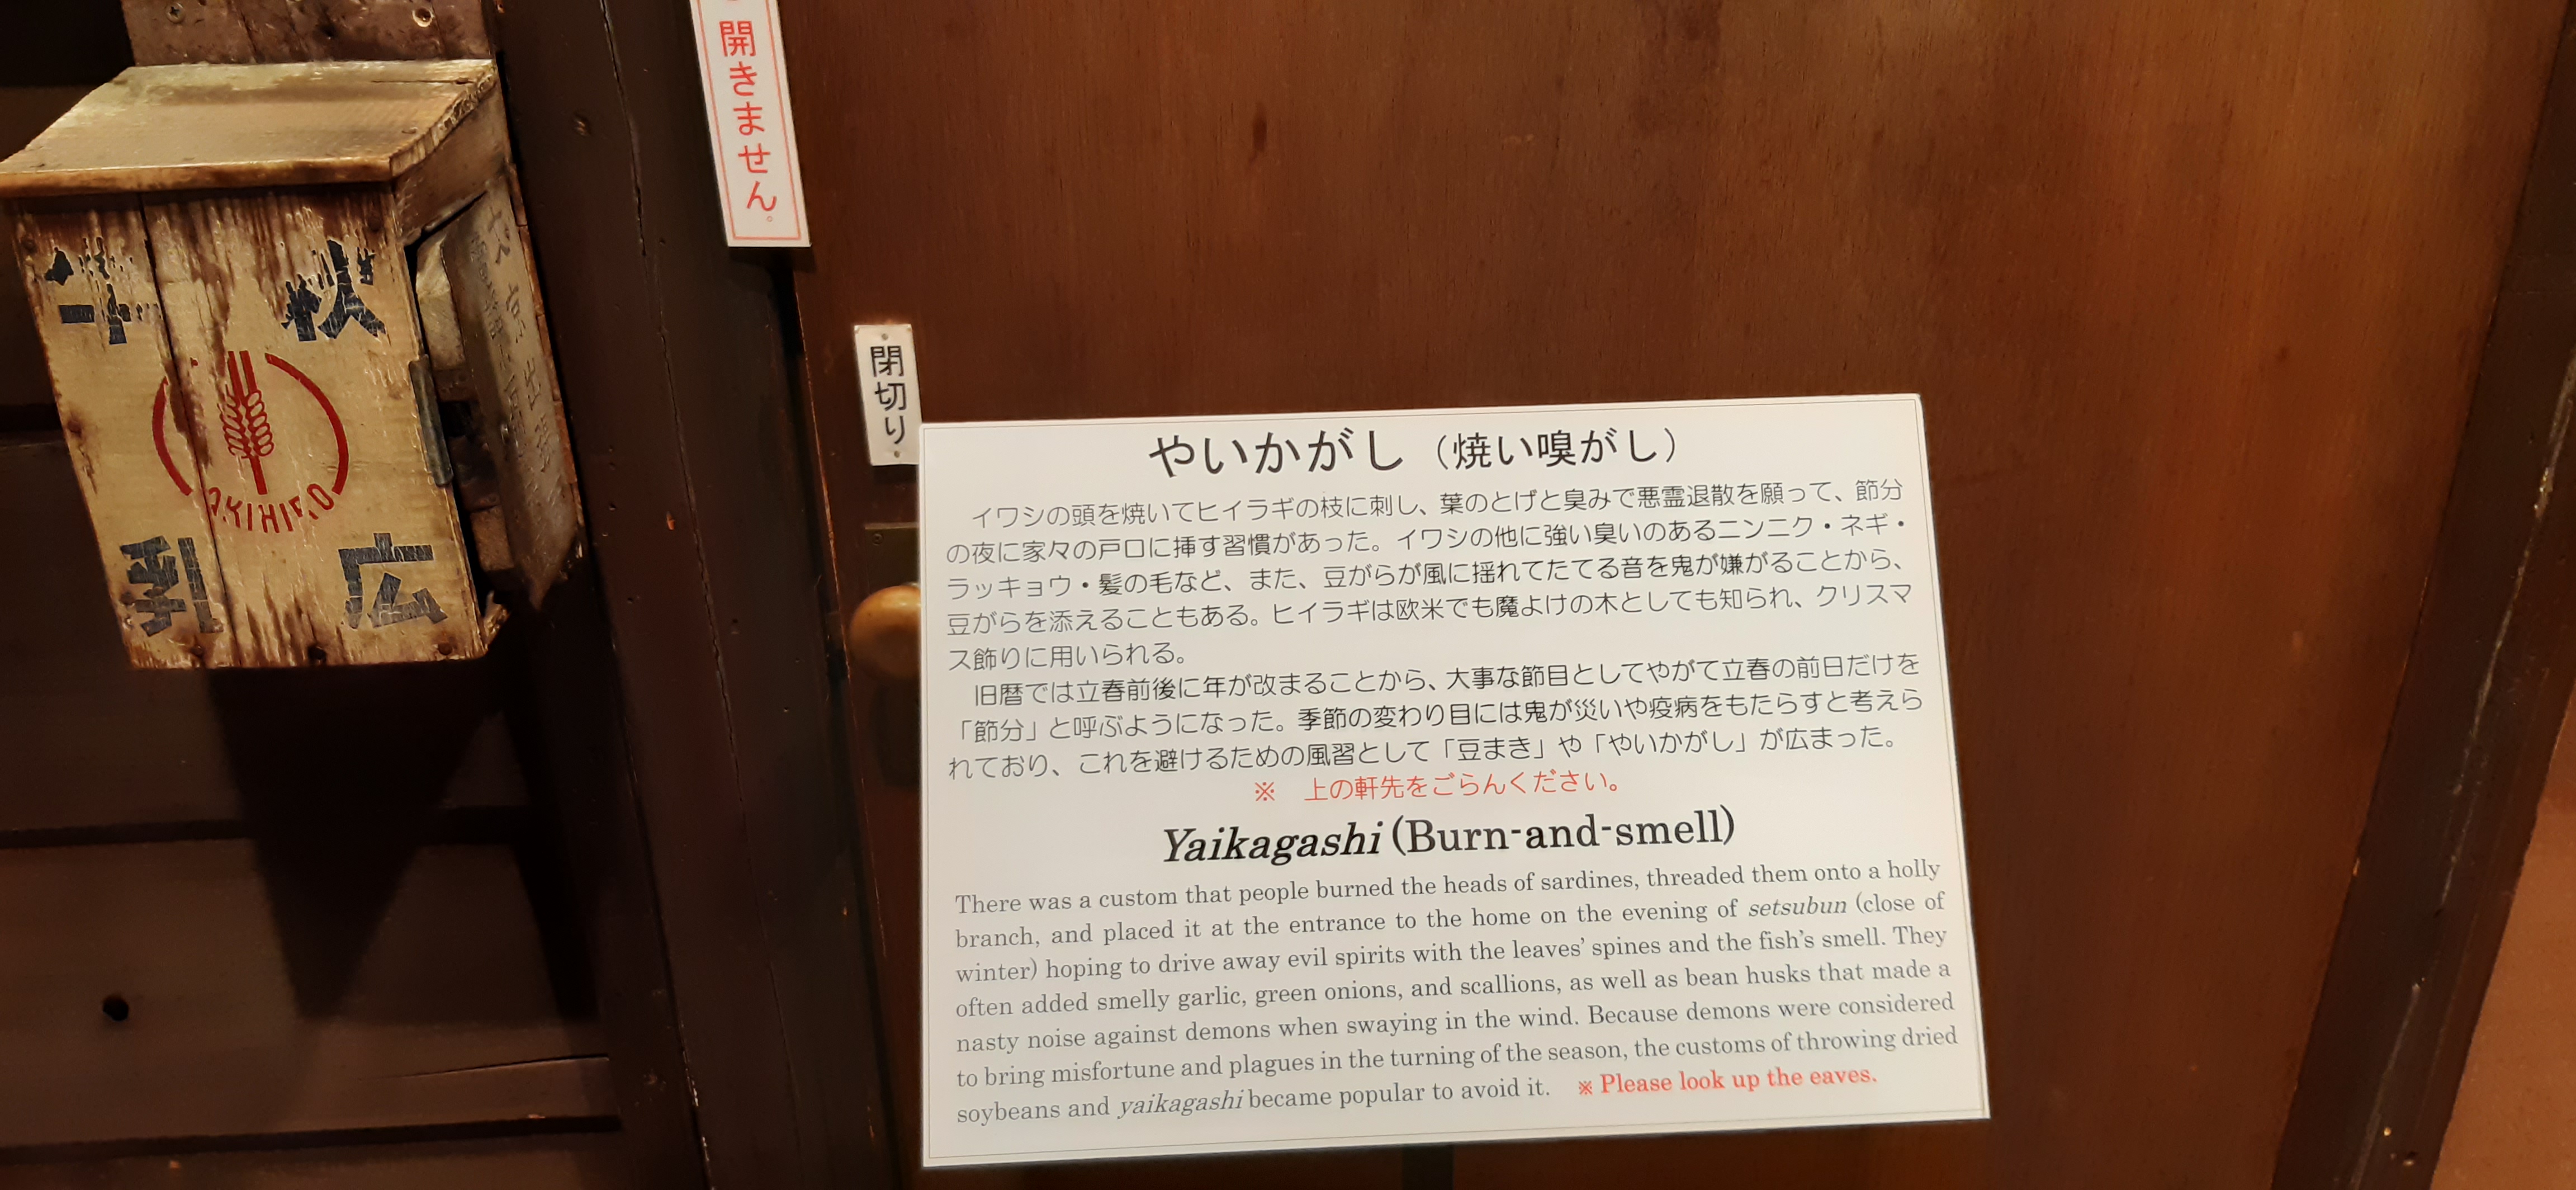 開きません。
閉切り
牛 秋
AKIHIRO
乳 広
やいかがし（焼い嗅がし）
イワシの頭を焼いてヒイラギの枝に刺し、葉のとげと臭みで悪霊退散を願って、節分
の夜に家々の戸口に挿す習慣があった。イワシの他に強い臭いのあるニンニク・ネギ・
ラッキョウ・髪の毛など、また、豆がらが風に揺れてたてる音を鬼が嫌がることから、
豆がらを添えることもある。ヒイラギは欧米でも魔よけの木としても知られ、クリスマ
ス飾りに用いられる。
旧暦では立春前後に年が改まることから、大事な節目としてやがて立春の前日だけを
「節分」と呼ぶようになった。季節の変わり目には鬼が災いや疫病をもたらすと考えら
れており、これを避けるための風習として「豆まき」や「やいかがし」が広まった。
※ 上の軒先をごらんください。
Yaikagashi (Burn-and-smell)
There was a custom that people burned the heads of sardines, threaded them onto a holly
branch, and placed it at the entrance to the home on the evening of setsubun (close of
winter) hoping to drive away evil spirits with the leaves' spines and the fish's smell. They
often added smelly garlic, green onions, and scallions, as well as bean husks that made a
nasty noise against demons when swaying in the wind. Because demons were considered
to bring misfortune and plagues in the turning of the season, the customs of throwing dried
soybeans and yaikagashi became popular to avoid it. ※ Please look up the eaves.